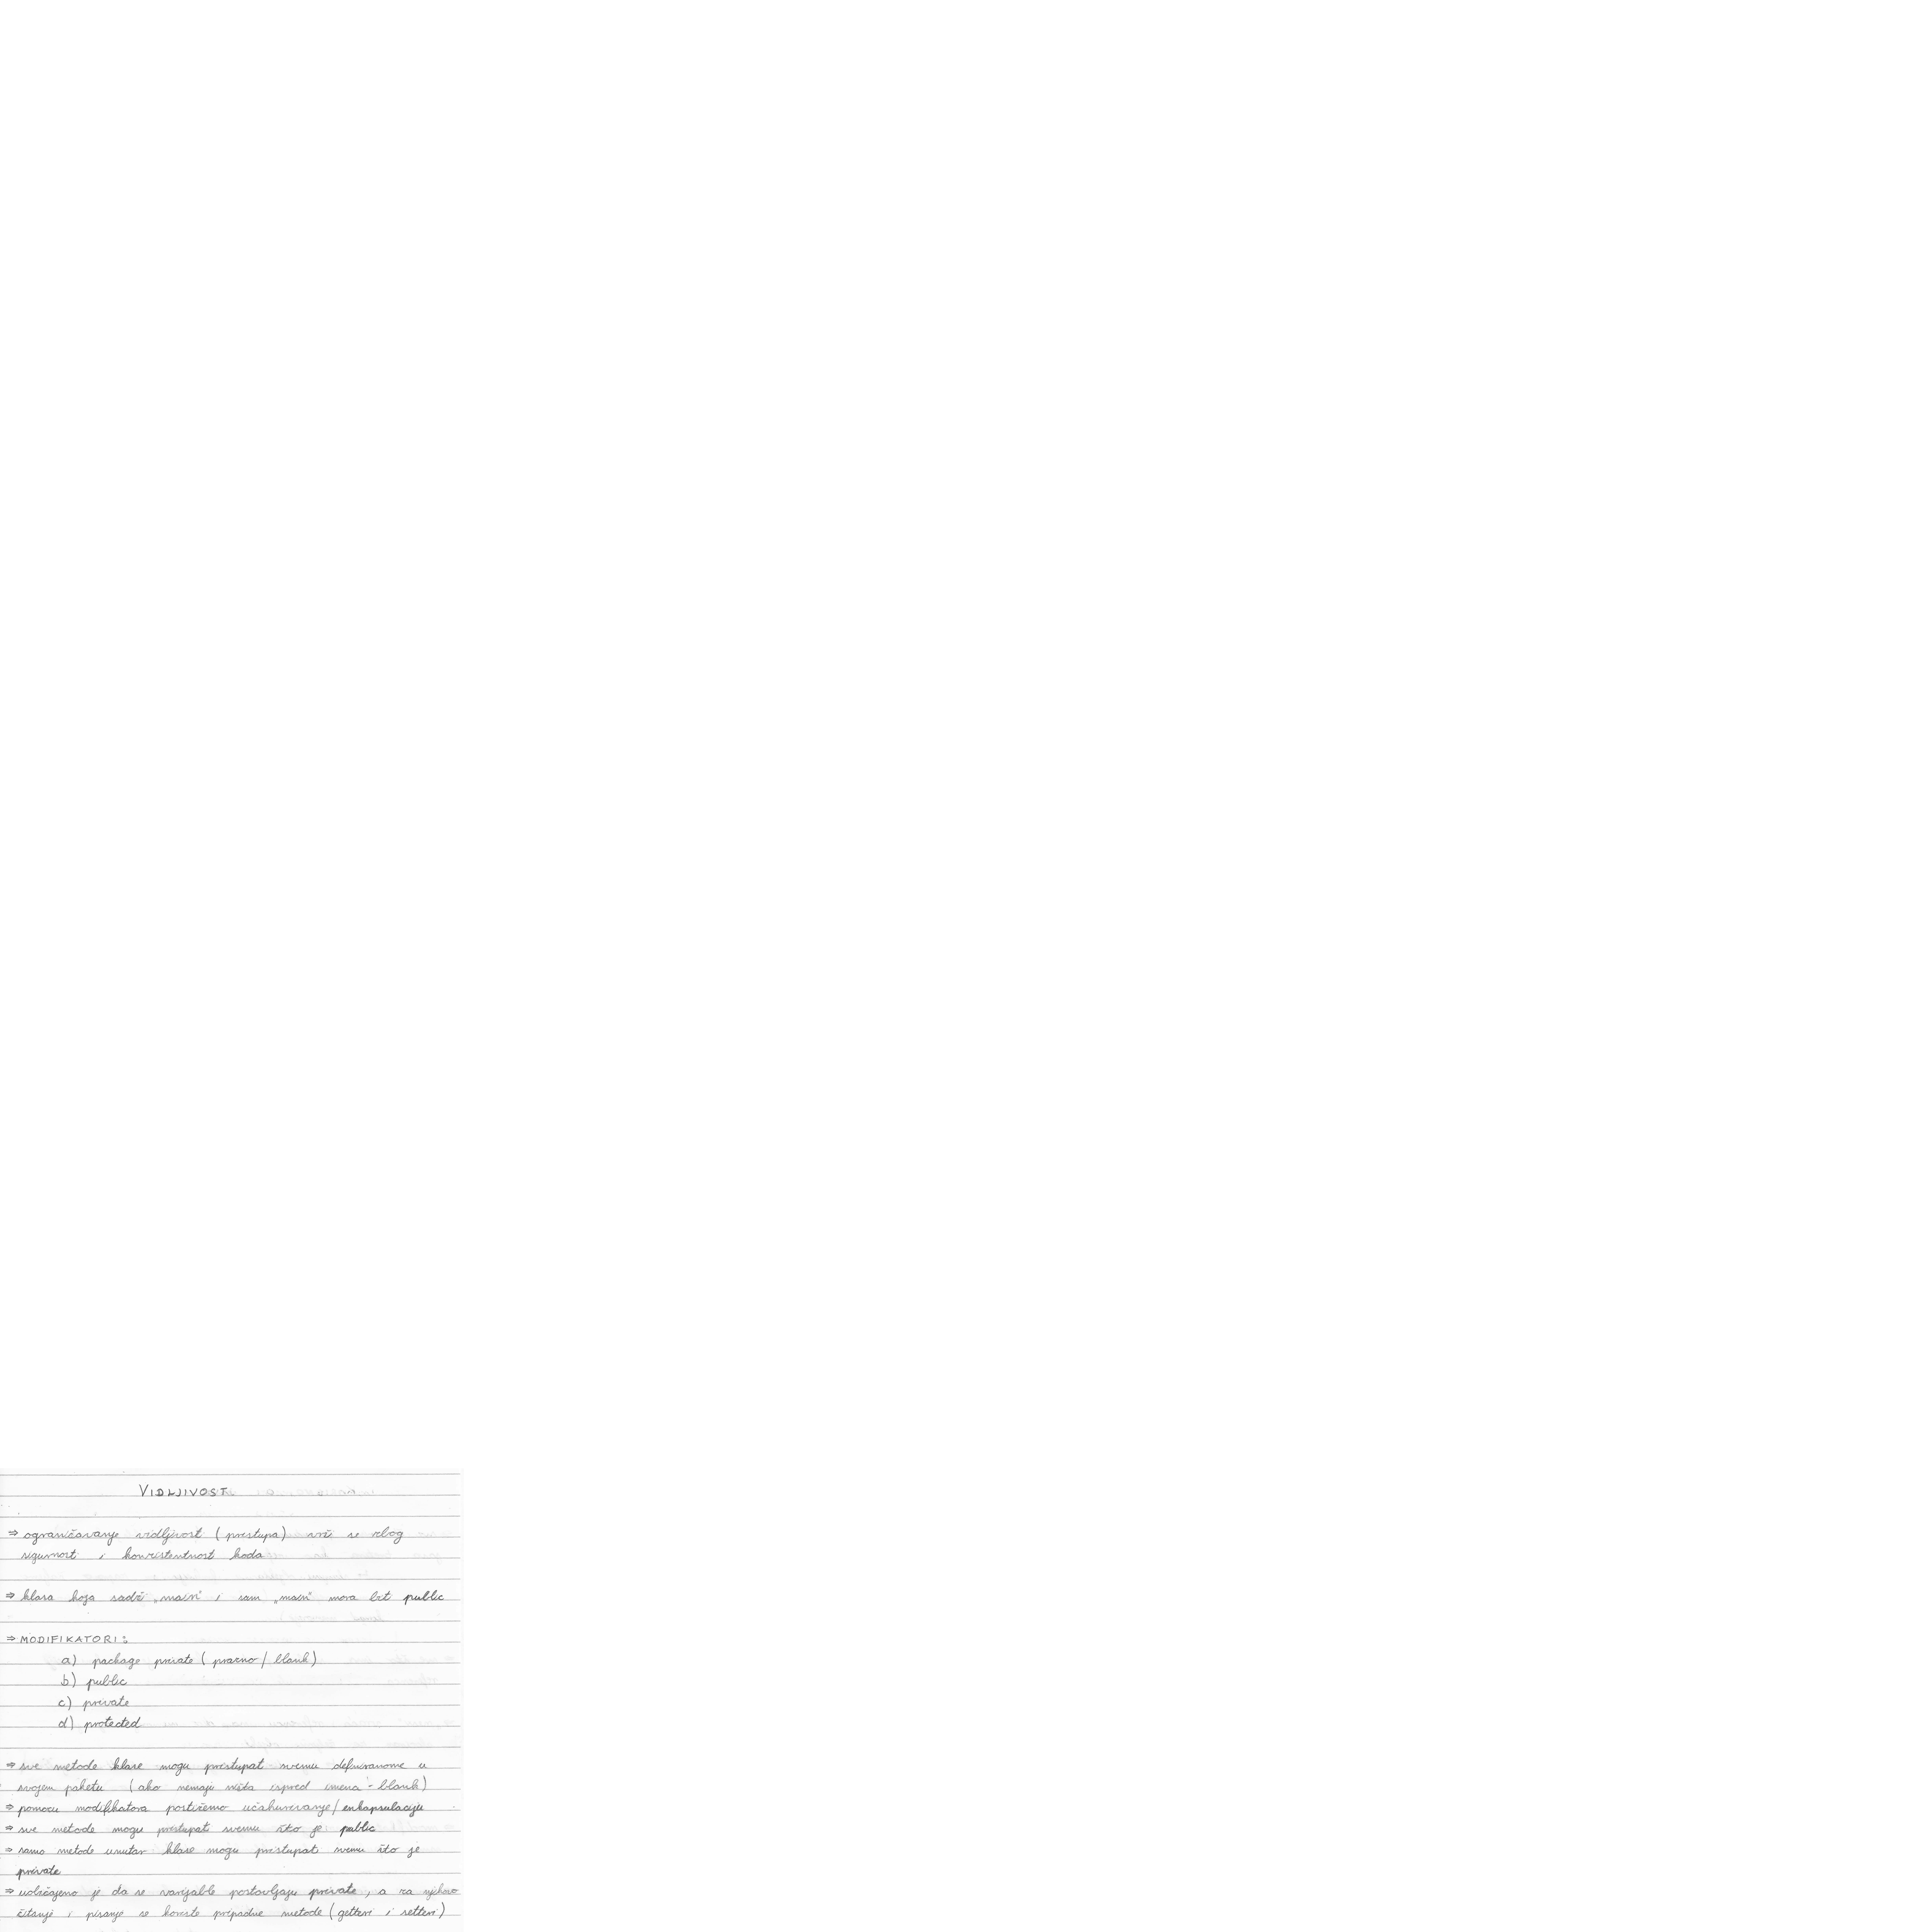 VIDLJIVOST
⇒ ograničavanje vidljivosti (pristupa) vrši se zbog
sigurnosti i konzistentnosti koda
⇒ klasa koja sadrži „main" i sam „main" mora bit public
⇒ MODIFIKATORI:
a) package private (prazno / blank)
b) public
c) private
d) protected
⇒ sve metode klase mogu pristupati svemu definiranome u
svojem paketu (ako nemaju ništa ispred imena - blank)
⇒ pomoću modifikatora postižemo učahurivanje / enkapsulaciju
⇒ sve metode mogu pristupati svemu što je public
⇒ samo metode unutar klase mogu pristupati svemu što je
private
⇒ uobičajeno je da se varijable postavljaju private, a za njihovo
čitanje i pisanje se koriste pripadne metode (getteri i setteri)